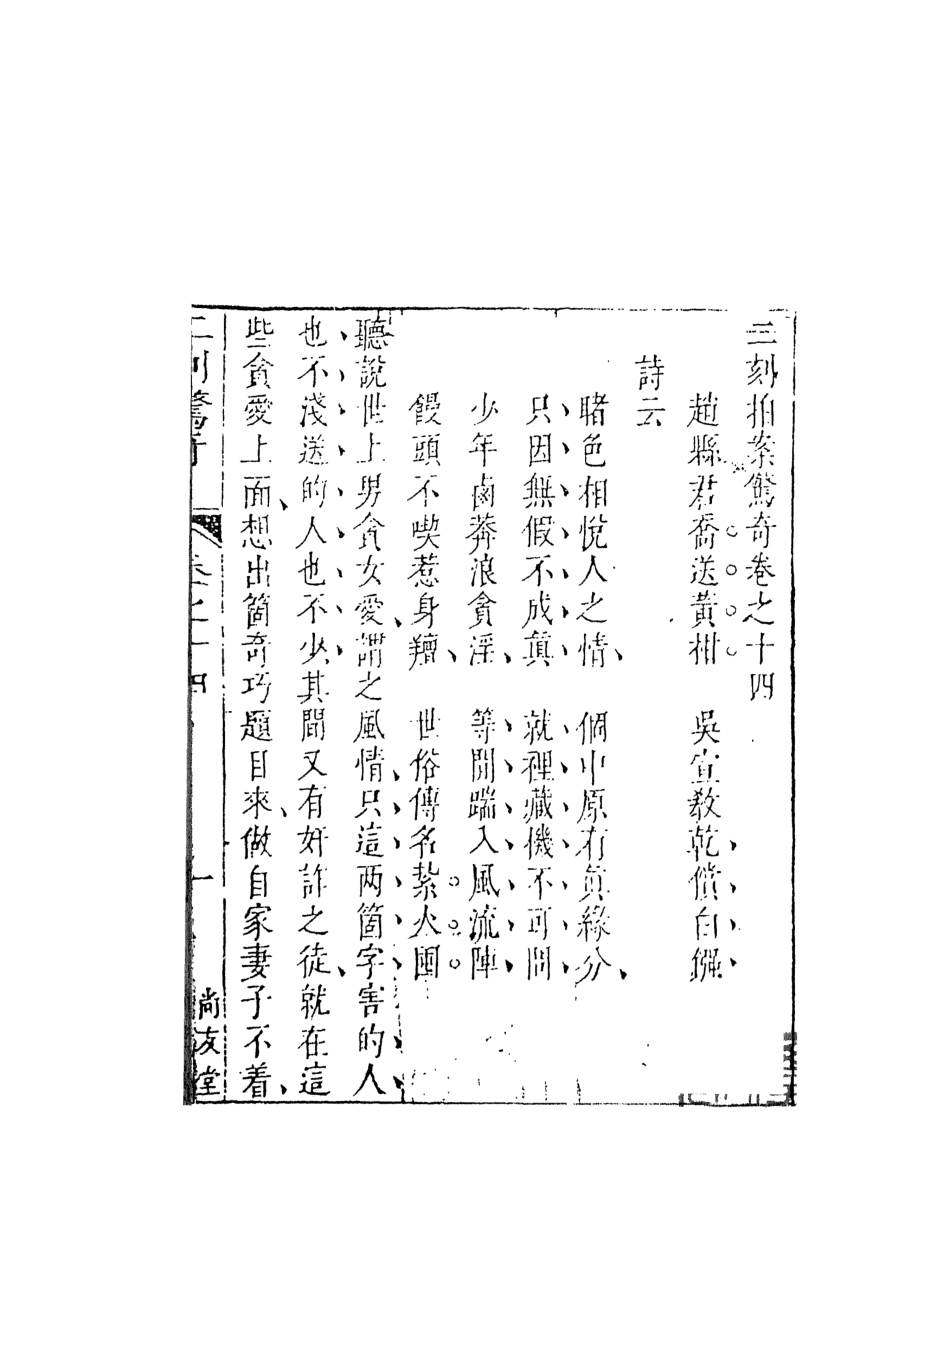 二刻拍案驚奇卷之十四
趙縣君喬送黃柑　吳宣教乾償白鏹
詩云
睹色相悅人之情　個中原有眞緣分
只因無假不成眞　就裡藏機不可問
少年鹵莽浪貪淫　等閒踹入風流陣
饅頭不喫惹身羶　世俗傳名紮火囤
聽說世上男貪女愛謂之風情只這两箇字害的人
也不淺送的人也不少其間又有奸詐之徒就在這
些貪愛上面想出箇奇巧題目來做自家妻子不着
二刻驚奇　卷之十四　一　尚友堂